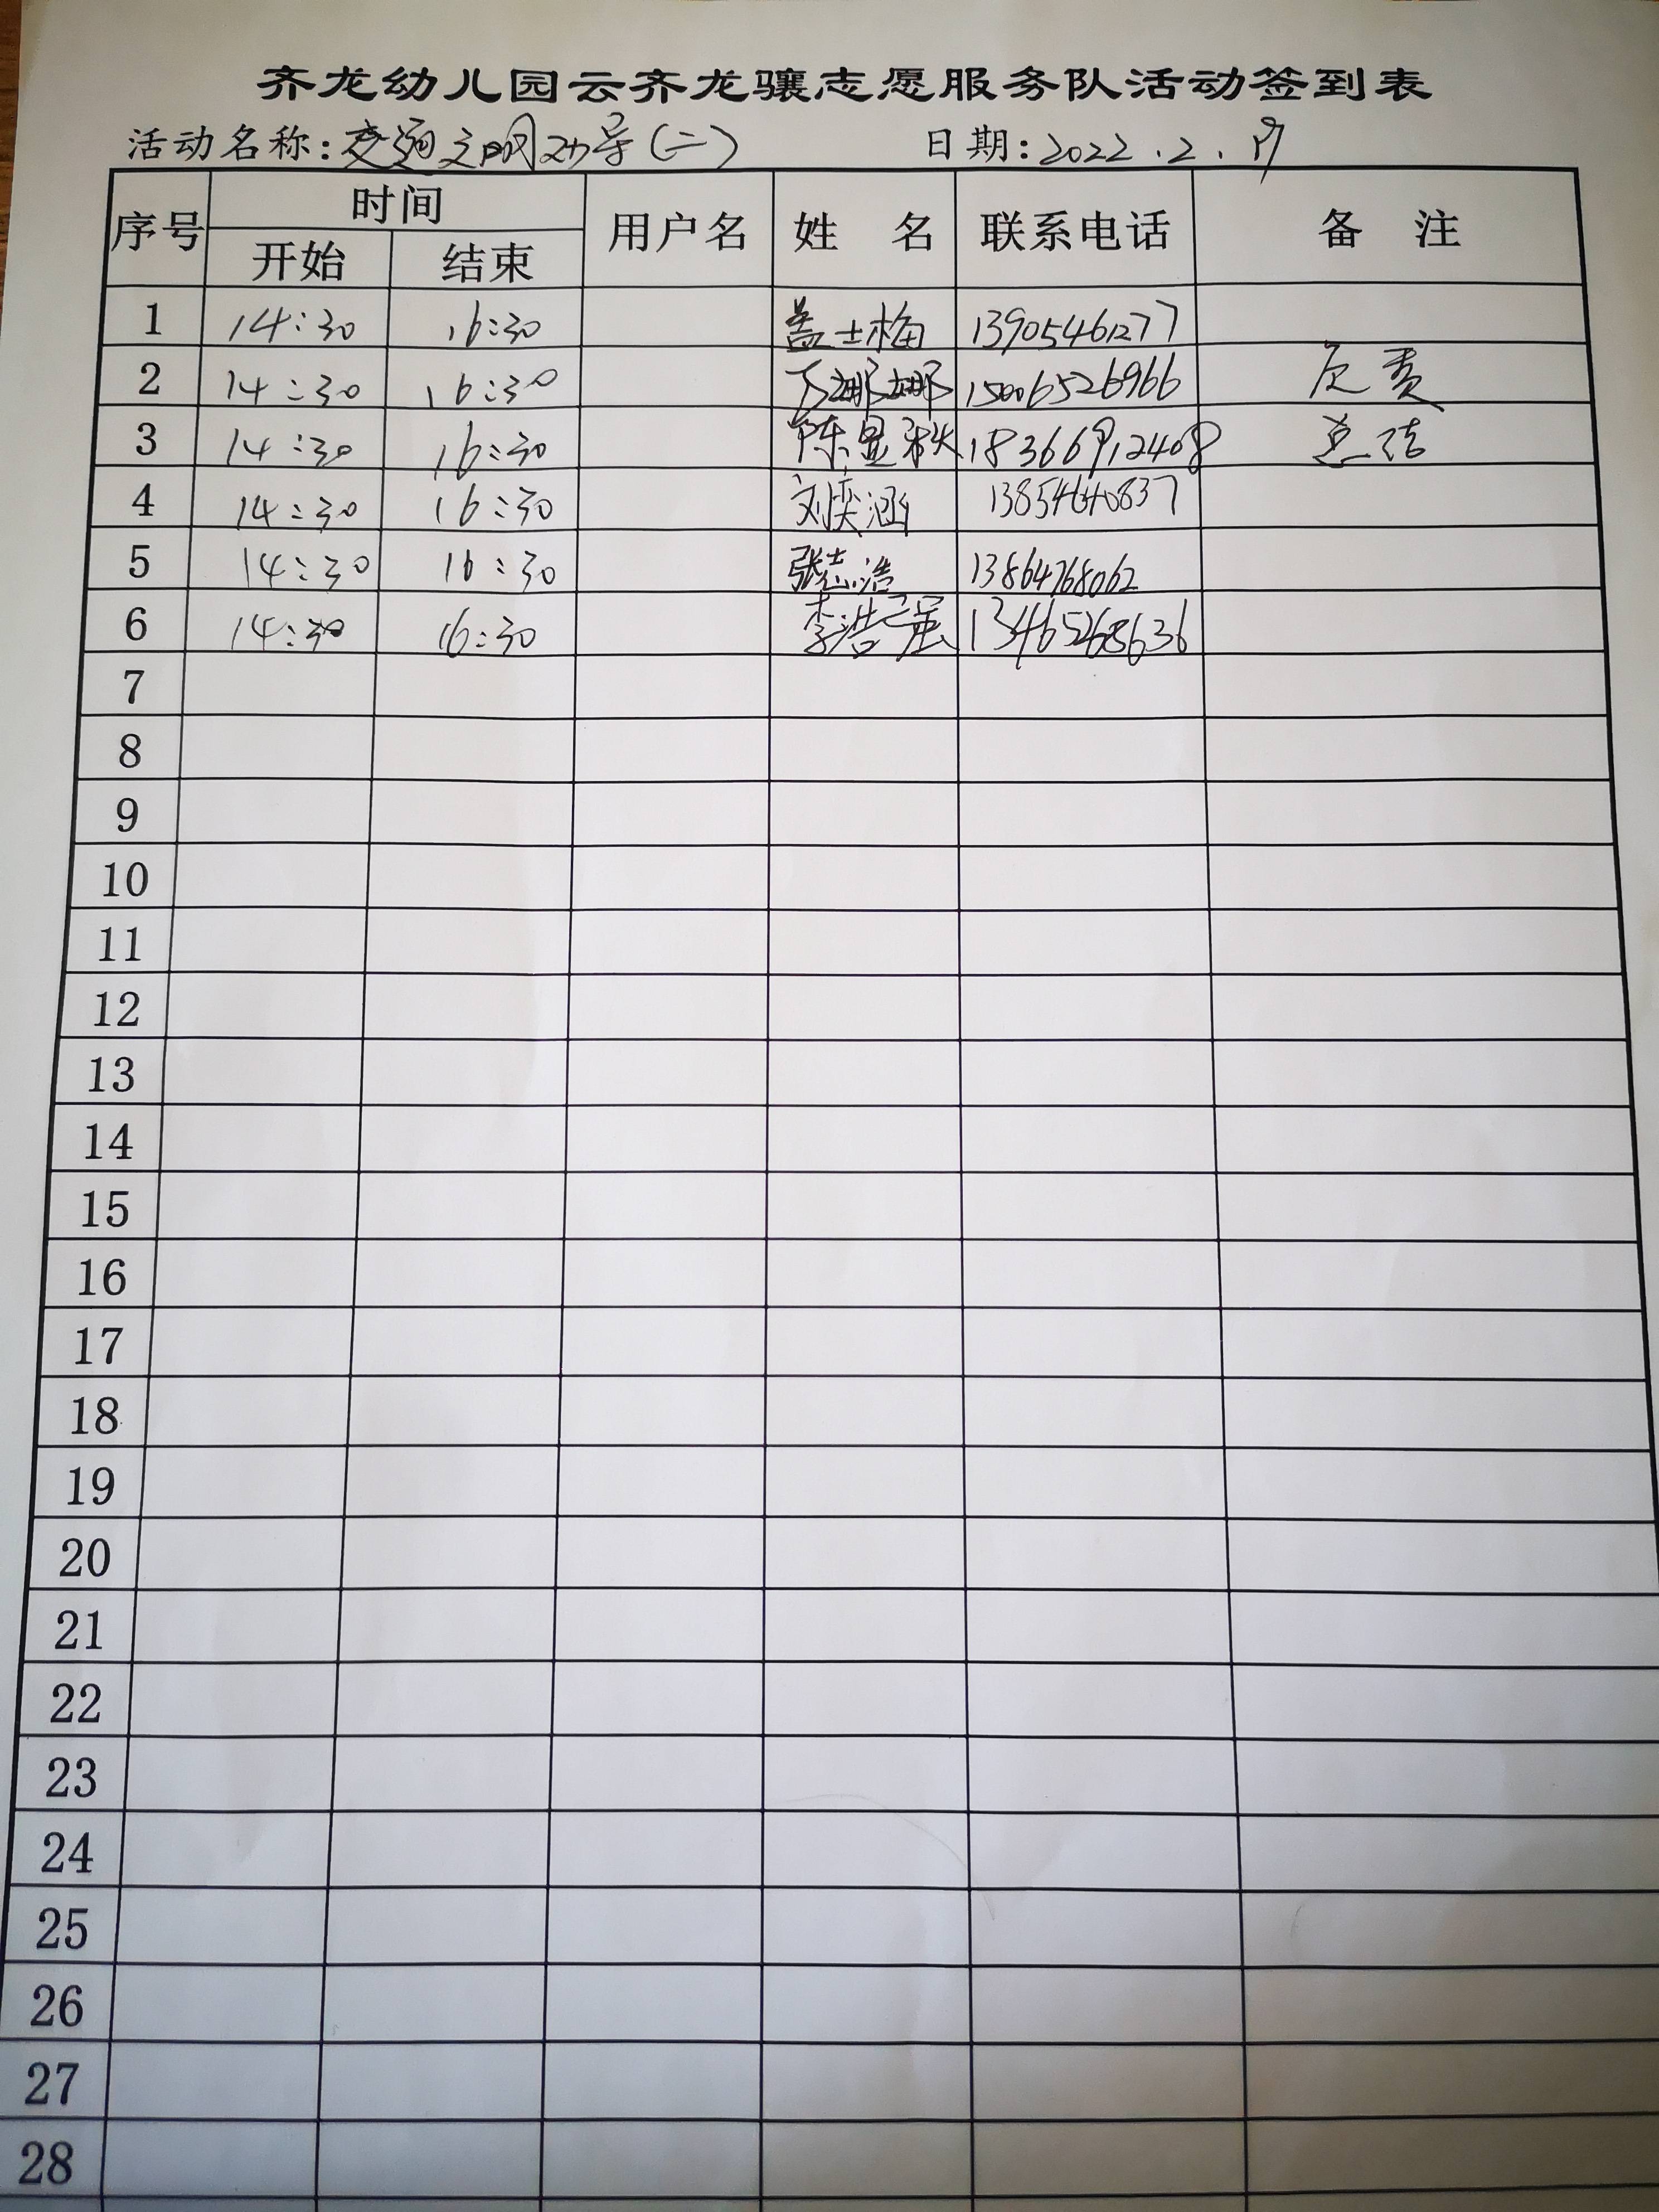 齐龙幼儿园云齐龙骧志愿服务队活动签到表
活动名称:交通文明劝导(二) 日期:2022.2.
序号 时间 用户名 姓 名 联系电话 备 注
开始 结束
1 14:30 16:30 盖士梅 13905461277
2 14:30 16:30 娜娜 15006526966 反责
3 14:30 16:30 陈显秋 18366912408 总结
4 14:30 16:30 刘奕涵 13854640837
5 14:30 16:30 张志浩 13864768062
6 14:30 16:30 李浩 13465268636
7
8
9
10
11
12
13
14
15
16
17
18
19
20
21
22
23
24
25
26
27
28